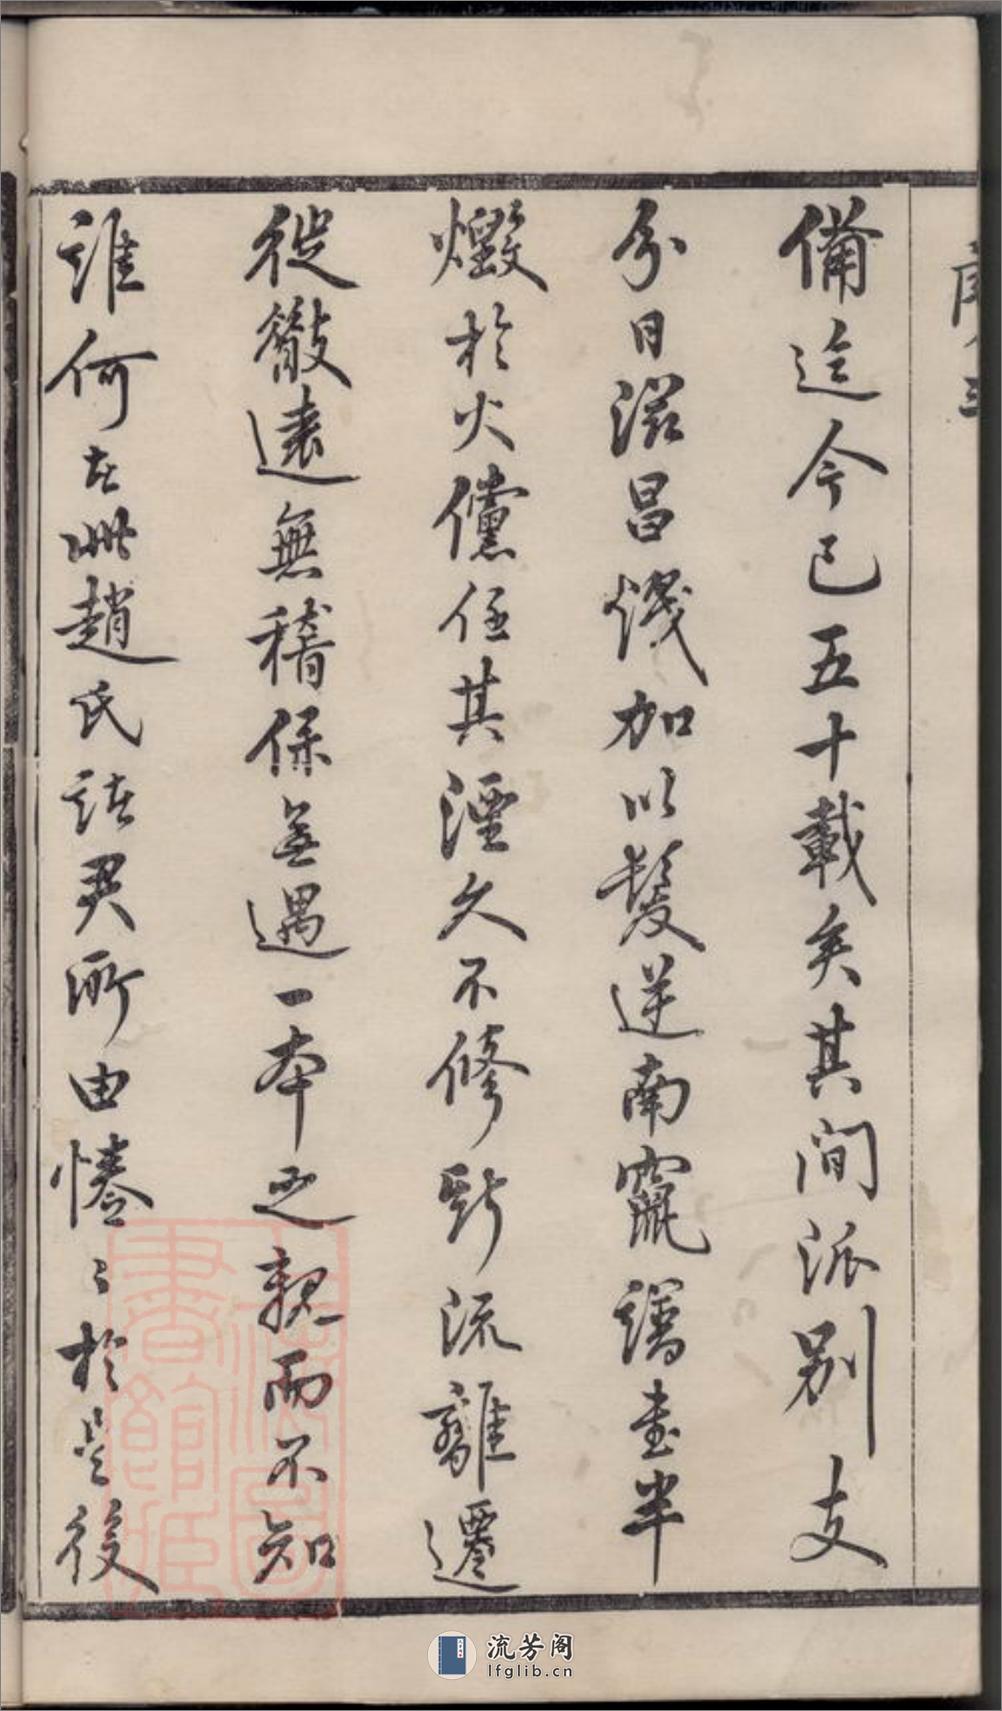 備迄今已五十載矣其間派别支
分日滋昌熾加以髮逆南竄譜盡半
燬於火儻任其湮久不修斷流離遷
徙散遠無稽保無遇一本之親而不知
誰何者此趙氏諸君所由惓〻於是後
流芳阁
lfglib.cn